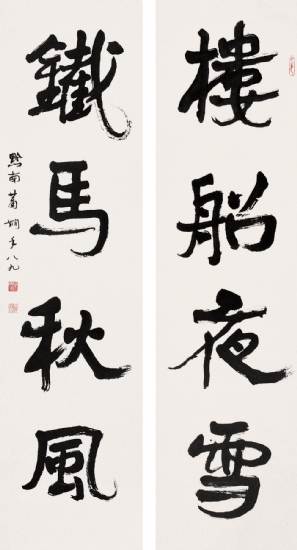 樓船夜雪
鐵馬秋風
黔南葛炯年八九